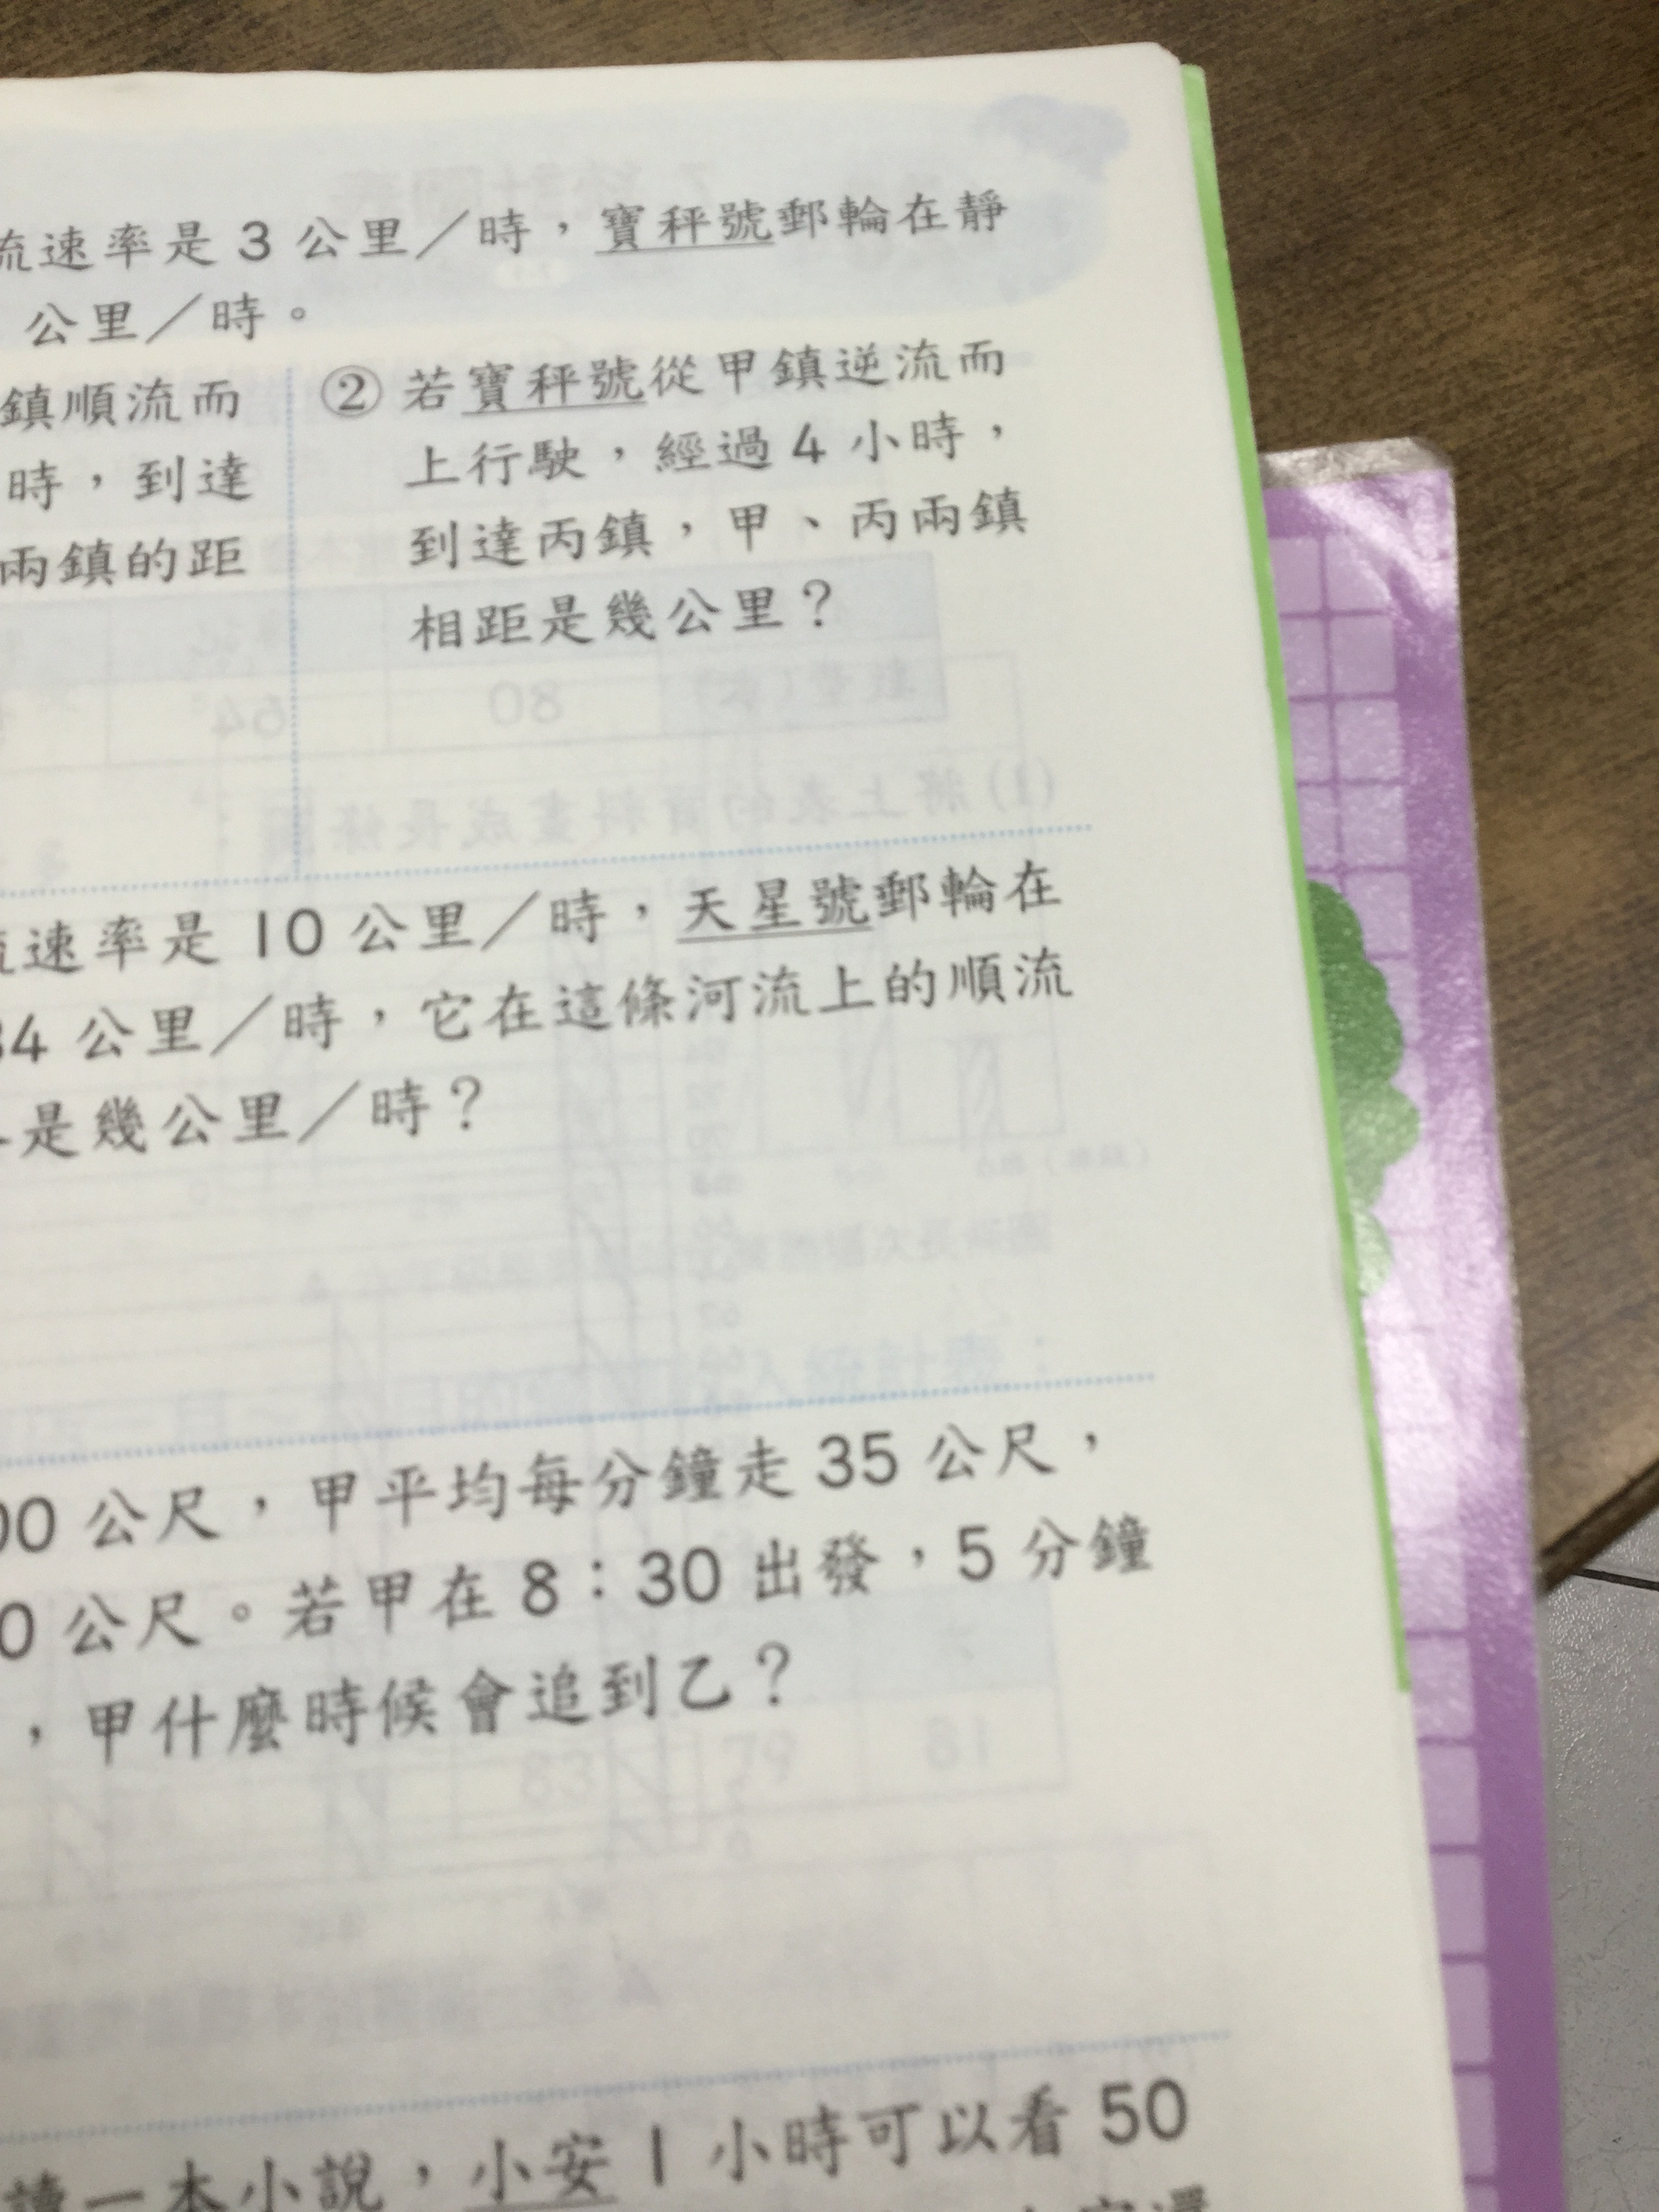 流速率是 3 公里／時，寶秤號郵輪在靜
公里／時。
鎮順流而
時，到達
兩鎮的距
② 若寶秤號從甲鎮逆流而
上行駛，經過 4 小時，
到達丙鎮，甲、丙兩鎮
相距是幾公里？
流速率是 10 公里／時，天星號郵輪在
34 公里／時，它在這條河流上的順流
是幾公里／時？
00 公尺，甲平均每分鐘走 35 公尺，
0 公尺。若甲在 8：30 出發，5 分鐘
，甲什麼時候會追到乙？
讀一本小說，小安 1 小時可以看 50